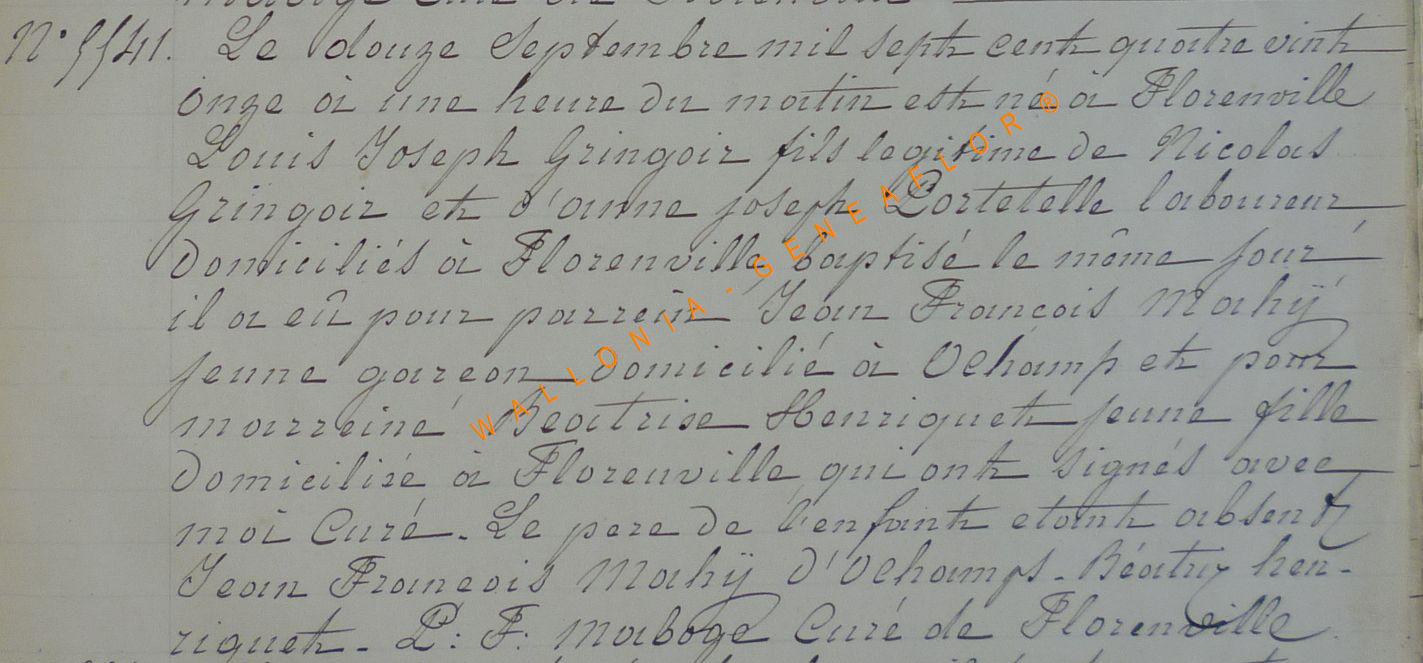 N° 5541. Le douze Septembre mil sept cent quatre vint
onze à une heure du matin est né à Florenville
Louis Joseph Gringoir fils legitime de Nicolas
Gringoir et d'anne joseph Portetelle laboureur
domiciliés à Florenville baptisé le même jour
il a eû pour parrein Jean François Mahÿ
jeune garcon domicilié à Ochamp et pour
marreine Beatrise Henriquet jeune fille
domiciliée à Florenville qui ont signés avec
moi Curé. Le pere de l'enfant etant absent
Jean Francois Mahÿ d'Ochamps. Béatrix hen-
riquet. P: F: Maboge Curé de Florenville
WALLONIA - GENEAFLOR ®